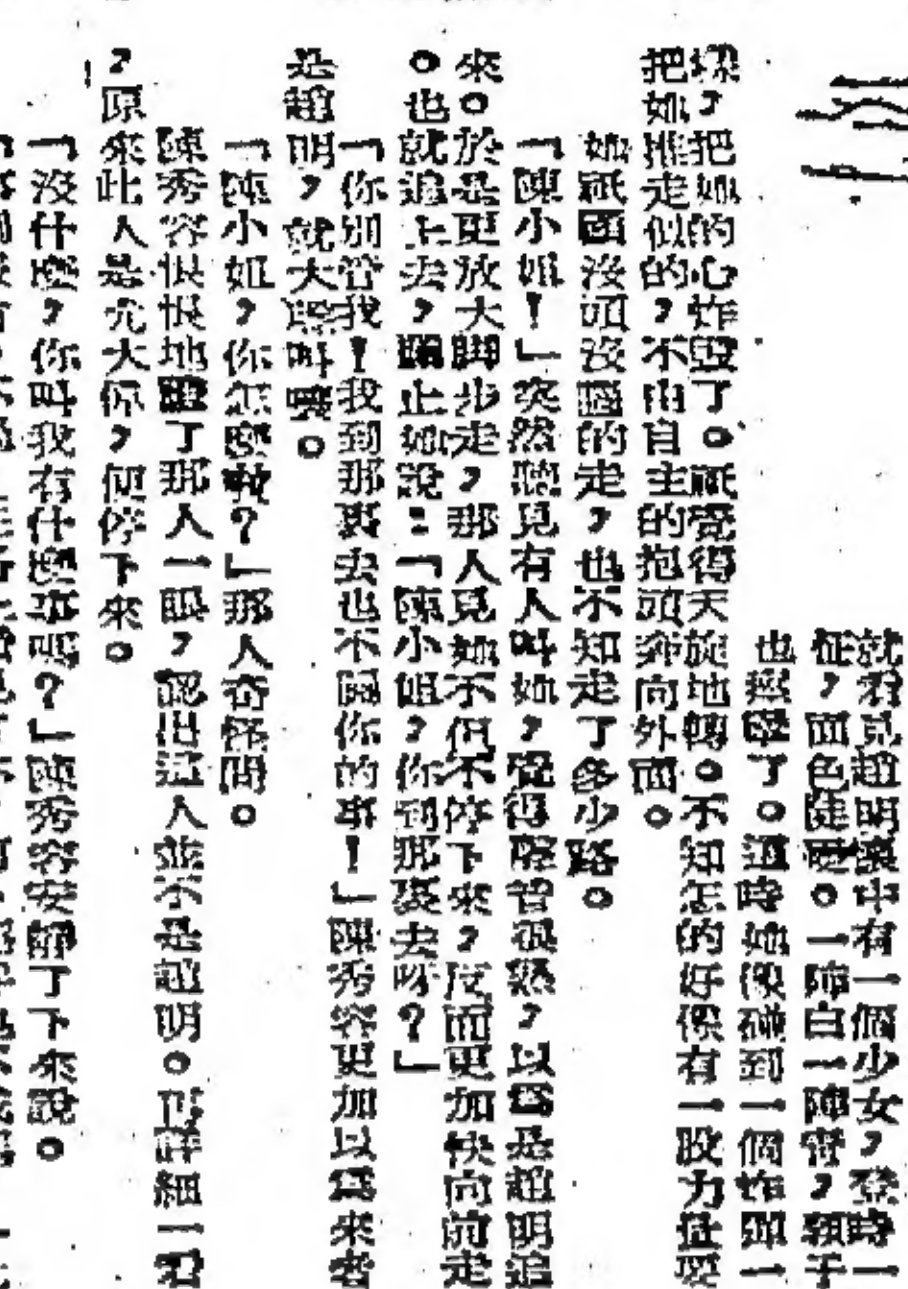 就看見趙明懷中有一個少女，登時一
怔，面色陡變。一陣白一陣青，頸子
也照擊了。這時她像碰到一個炸彈一
樣，把她的心炸毀了。祇覺得天旋地轉。不知怎的好像有一股力量要
把她推走似的，不由自主的抱頭奔向外面。
她祇頭沒頭沒腦的走，也不知走了多少路。
「陳小姐！」突然聽見有人叫她，覺得聲音很熟，以爲是趙明追
來。於是更放大脚步走，那人見她不但不停下來，反而更加快向前走
。也就追上去，攔止她說：「陳小姐，你到那裏去呀？」
「你別管我！我到那裏去也不關你的事！」陳秀容更加以爲來者
是趙明，就大聲叫嚷。
「陳小姐，你怎麼啦？」那人奇怪問。
陳秀容恨恨地瞪了那人一眼，認出這人並不是趙明。再詳細一看
，原來此人是尤大保，便停下來。
「沒什麼，你叫我有什麼事嗎？」陳秀容安靜了下來說。